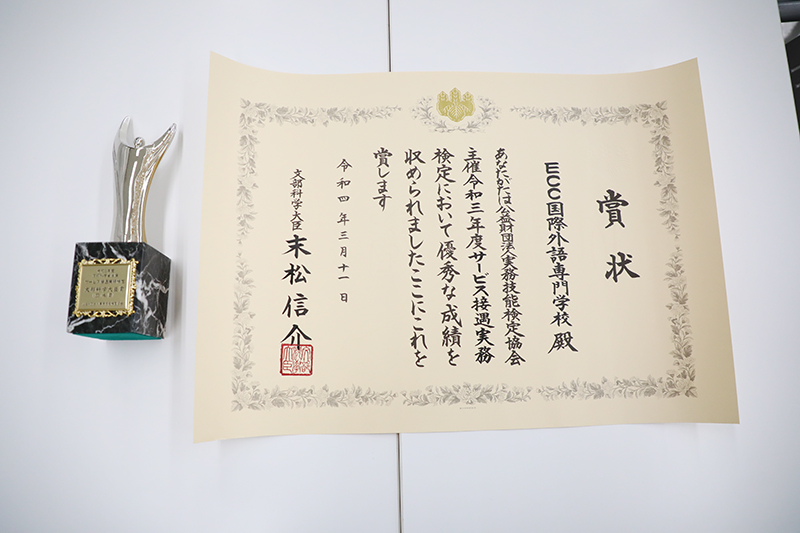 賞状
ECC国際外語専門学校 殿
あなたがたは公益財団法人実務技能検定協会
主催令和三年度サービス接遇実務
検定において優秀な成績を
収められましたここにこれを
賞します
令和四年三月十一日
文部科学大臣 末松信介